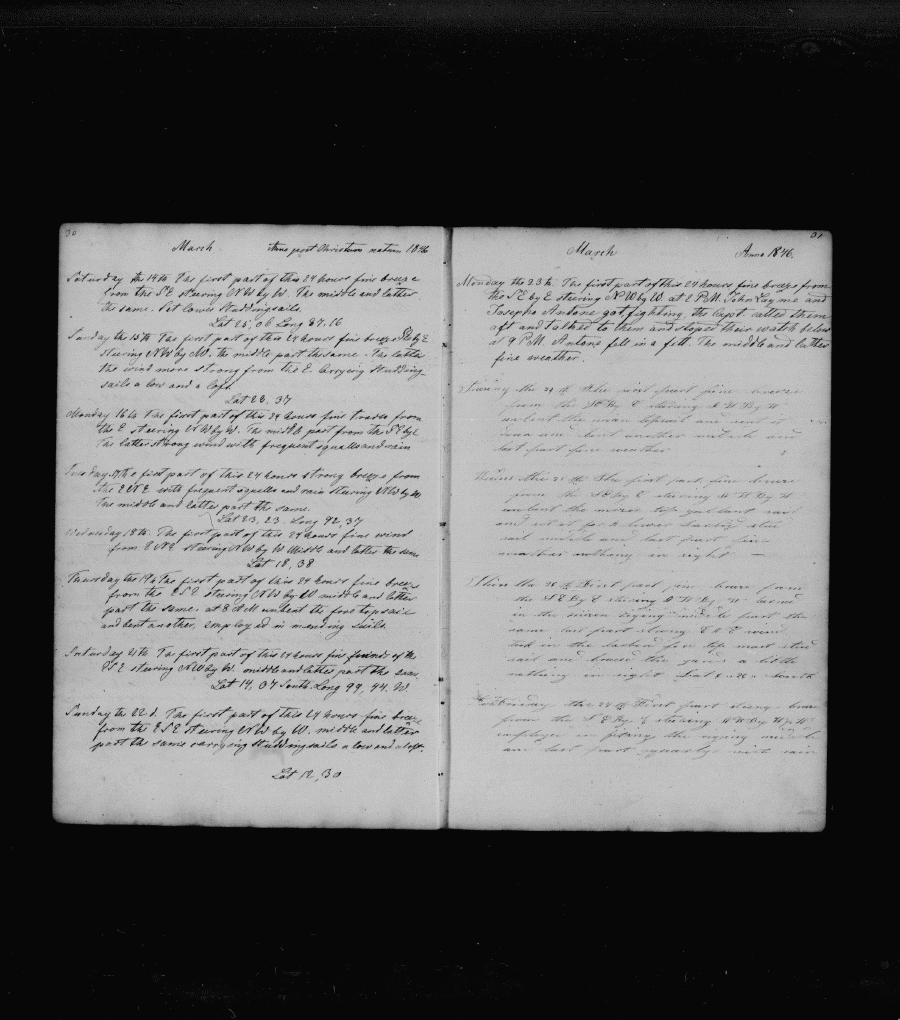 30
March Anno post Christum natum 1846
Saturday the 14th. The first part of this 24 hours fine breeze
from the SE steering NW by W. The middle and latter
the same. Set lower studdingsails.
Lat 25, 06 Long 87, 16
Sunday the 15th. The first part of this 24 hours fine breeze SE by E
steering NW by W. the middle part the same. The latter
the wind more strong from the E. carrying studding-
sails a low and a loft.
Lat 23, 37
Monday 16th The first part of this 24 hours fine trades from
the E steering NW by W. The middle part from the SE by E
The latter strong wind with frequent squalls and rain
Tuesday 17th e first part of this 24 hours strong breeze from
the ENE with frequent squalls and rain steering NW by W.
the middle and latter part the same.
Lat 23, 23. Long 92, 37
Wednesday 18th. The first part of this 24 hours fine wind
from ENE steering NW by W Middle and latter the same
Lat 18, 38
Thursday the 19th The first part of this 24 hours fine breeze
from the ESE steering NW by W middle and latter
part the same. at 8 AM unbent the fore topsail
and bent another, employed in mending sails.
Saturday 21th. The first part of this 24 hours fine winds of the
ESE steering NW by W. middle and latter part the same,
Lat 14, 07 South Long 99, 44. W.
Sunday the 22d. The first part of this 24 hours fine breeze
from the ESE steering NW by W. middle and latter
part the same carrying studdingsails a low and a loft.
Lat 12, 30
31
March Anno 1846.
Monday the 23th. The first part of this 24 hours fine breeze from
the SE by E steering NW by W. at 2 PM. John and
Josepho Antone got fighting the Capt. called them
aft and talked to them and stoped their watch below
at 9 PM. Antone fell in a fitt. The middle and latter
fine weather.
the 24 th the first part fine breeze
from the SE By E steering N W By W
unbent the main topsail and sent it
down and bent another midle and
last part fine weather
the 25 th the first part fine breeze
from the SE by E steering N W By W
unbent the top gallant sail
and a lower studing
sail midle and last part fine
weather nothing in sight
the 26 th First part fine breeze from
the S E By E steering N W By W
in the mizen riging midle part the
same last part strong E S E wind
took in the fore top mast stud
sail and the yards a little
nothing in sight Lat South
the 27 th First part strong breeze
from the S E By E steering N W By W
employed in fixing the riging midle
and last part squarly with rain